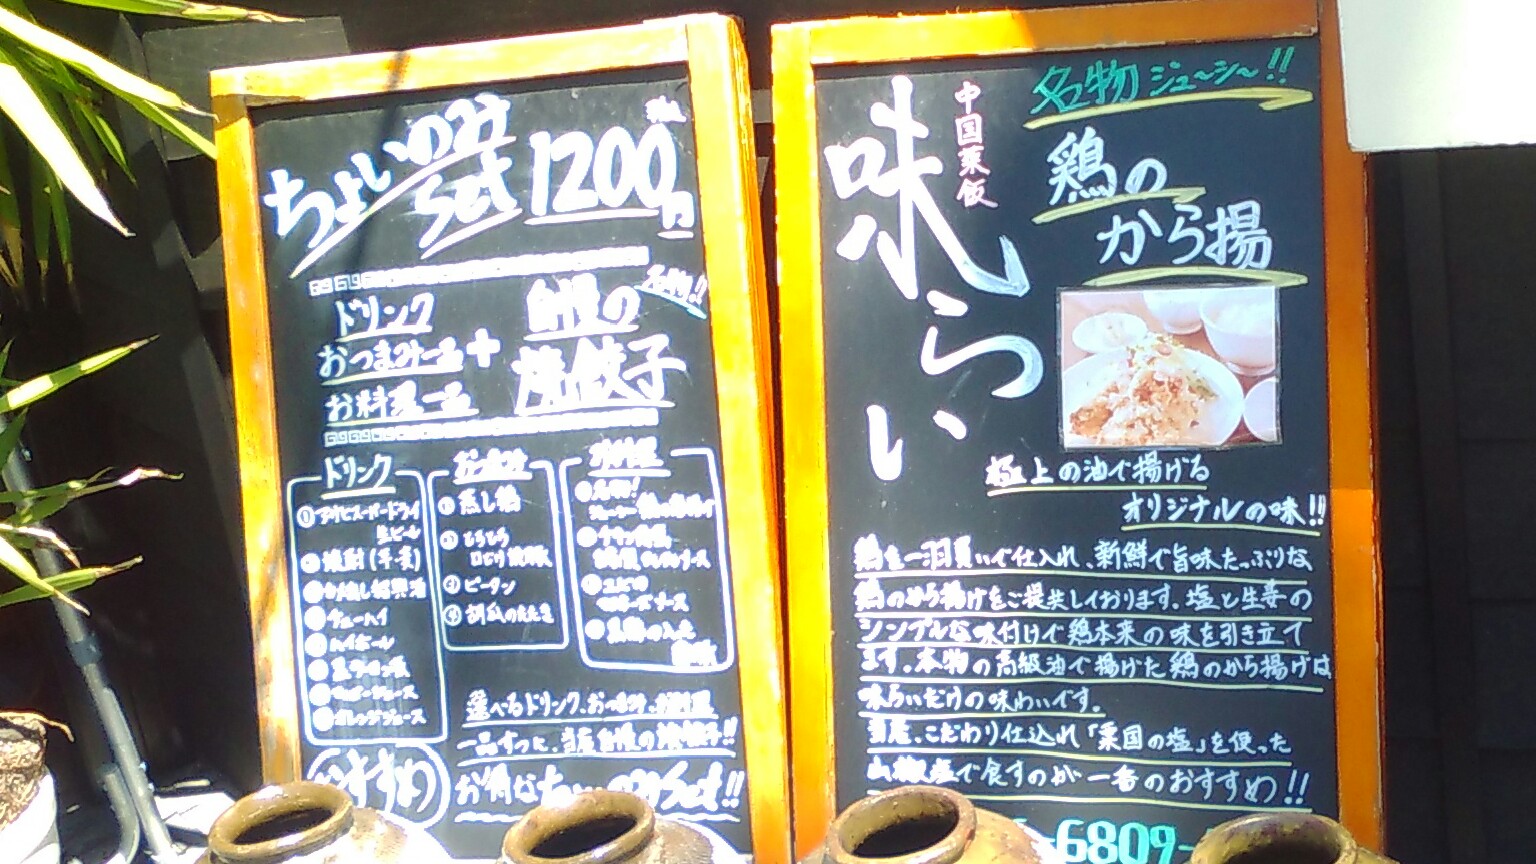 ちょいのみ
set 1200円
名物!!
ドリンク
おつまみ一品
お料理一品
+
自慢の
焼餃子
ドリンク
①アサヒスーパードライ
生ビール
焼酎(芋・麦)
かめ出し紹興酒
チューハイ
ハイボール
黒ウーロン茶
オレンジジュース
おつまみ
蒸し鶏
とろとろ
口どけ焼豚
③ピータン
胡瓜のたたき
お料理
名物!
ジューシー鶏のから揚げ
選べるドリンク、おつまみ、お料理
一品ずつに、当店自慢の焼餃子!!
おすすめ
お得なちょい呑みSet!!
中国菜飯
味らい
名物ジュ〜シ〜!!
鶏の
から揚
極上の油で揚げる
オリジナルの味!!
鶏を一羽買いで仕入れ、新鮮で旨味たっぷりな
鶏のから揚げをご提供しております。塩と生姜の
シンプルな味付けで鶏本来の味を引き立て
ます。本物の高級油で揚げた鶏のから揚げは
味らいだけの味わいです。
当店、こだわり仕入れ「粟国の塩」を使った
山椒塩で食すのが一番のおすすめ!!
6809-